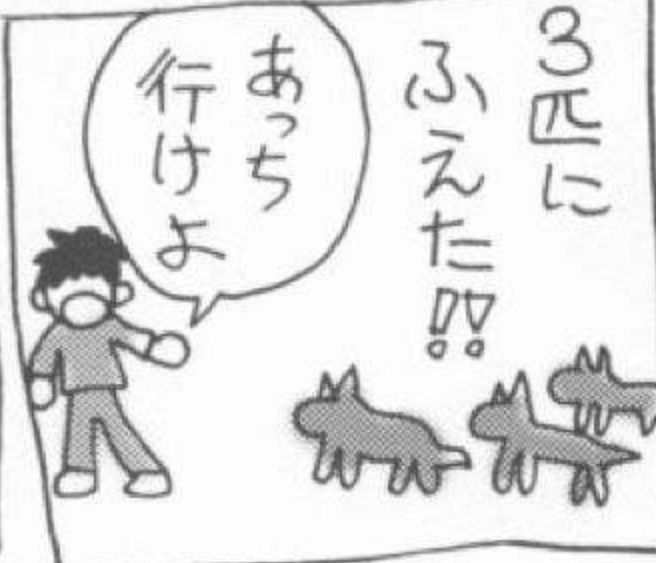 3匹に
ふえた!!
あっち
行けよ